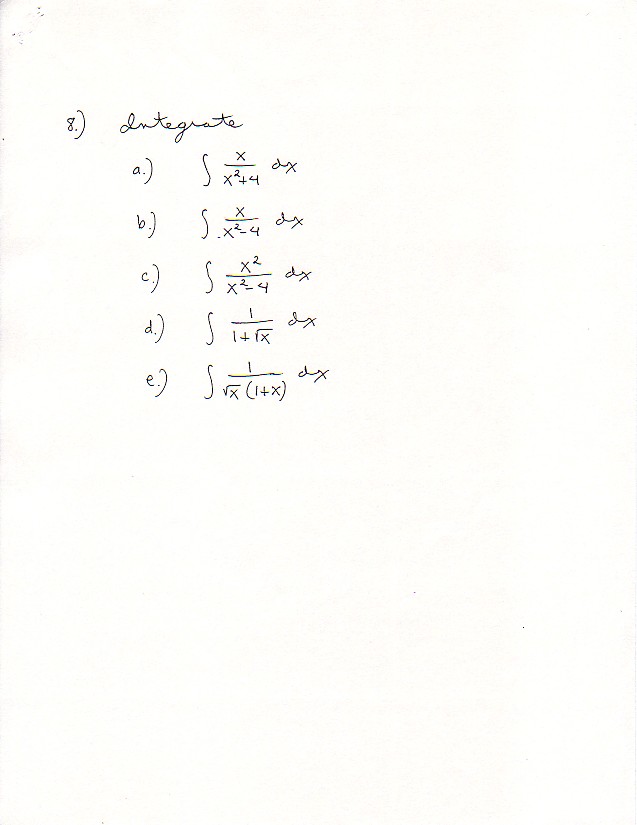 8.) Integrate
a.) ∫ x/(x²+4) dx
b.) ∫ x/(x²-4) dx
c.) ∫ x²/(x²-4) dx
d.) ∫ 1/(1+√x) dx
e.) ∫ 1/(√x (1+x)) dx